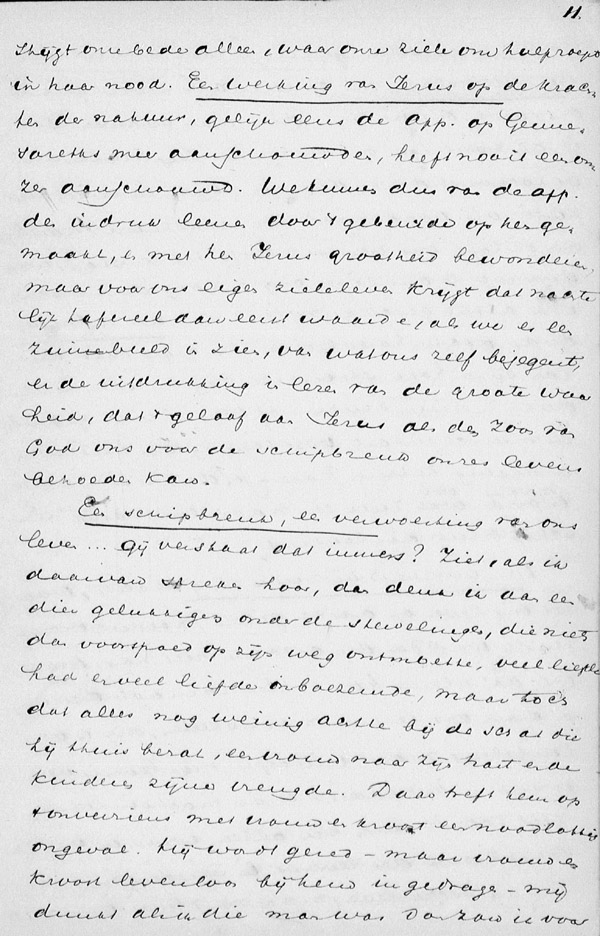 11.
stijgt onze bede alleen, waar onze ziele om hulp roept
in haar nood. Een werking van Jezus op de krach-
ten der natuur, gelijk eens de app. op Genne-
sareths meer aanschouwden, heeft nooit een on-
zer aanschouwd. We kunnen dus van de app.
den indruk leenen door 't gebeurde op hen ge-
maakt, en met hen Jezus grootheid bewonderen,
maar voor ons eigen zieleleven krijgt dat
tafereel dan eerst waarde, als we er een
zinnebeeld in zien, van wat ons zelf bejegent,
en de uitdrukking in lezen van de groote waar
heid, dat 't geloof aan Jezus als den Zoon van
God ons voor de schipbreuk onzes levens
behoeden kan.
Een schipbreuk, een verwoesting van ons
leven ... gij verstaat dat immers? Ziet, als ik
daarvan spreken hoor, dan denk ik aan een
dier gelukkigen onder de stervelingen, die niets
dan voorspoed op zijn weg ontmoette, veel liefde
had en veel liefde inboezemde, maar toch
dat alles nog weinig achtte bij de schat die
hij thuis bezat, een vrouw naar zijn hart en de
kinderen zijne vreugde. Daar treft hem op
't onverziens met vrouw en kroost een noodlottig
ongeval. Hij wordt gered - maar vrouw en
kroost levenloos bij hem in gedragen - mij
dunkt als ik die man was dan zou ik voor